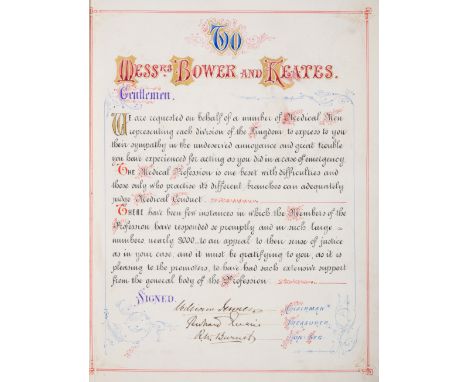 To
Messrs Bower and Keates.
Gentlemen,
We are requested on behalf of a number of Medical Men
representing each division of the Kingdom to express to you
their sympathy in the undeserved annoyance and great trouble
you have experienced for acting as you did in a case of emergency.
The Medical Profession is one beset with difficulties and
those only who practise it's different branches can adequately
judge Medical Conduct.
There have been few instances in which the Members of the
Profession have responded so promptly and in such large
numbers nearly 3000 to an appeal to their sense of justice
as in your case, and it must be gratifying to you, as it is
pleasing to the promoters, to have had such extensive support
from the general body of the Profession.
Signed.
Chairman
Treasurer
Hon: Sec